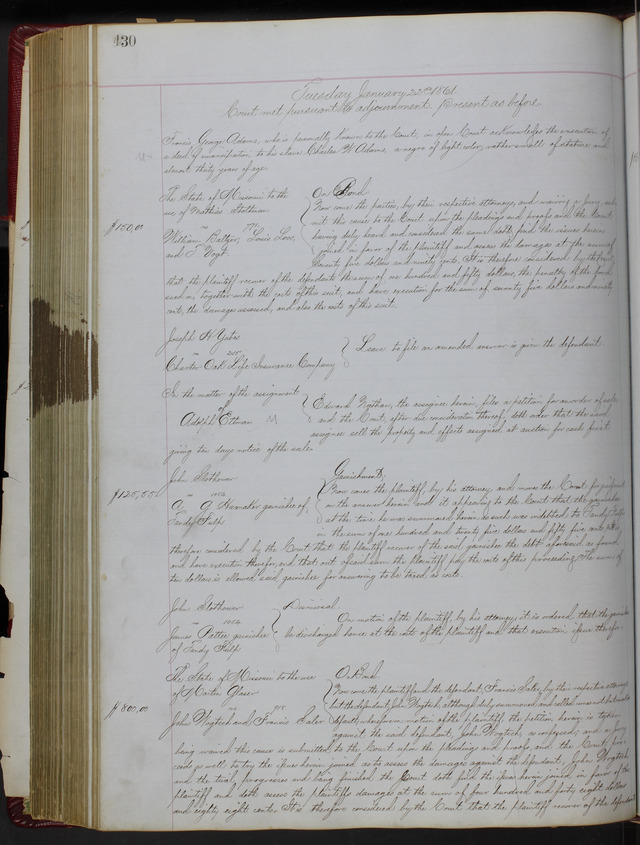 430
Tuesday January 22nd 1861
Court met pursuant to adjournment. Present as before
Francis George Adams, who is personally known to the Court, in open Court acknowledges the execution of
a deed of emancipation to his slave Charles W Adams, a negro of light color, rather small of stature and
about thirty years of age.
The State of Missouri to the
use of Mathias
$150,00
vs
William Louis
and
On Bond
Now come the parties, by their respective attorneys, and waiving a jury sub-
mit the cause to the Court upon the pleadings and proofs and the Court
having duly heard and considered the same doth find the issues herein
joined in favor of the plaintiff and assess the damages at the sum of
Seventy five dollars and ninety cents. It is therefore considered by the Court
that the plaintiff recover of the defendants the sum of one hundred and fifty dollars, the penalty of the bond
sued on, together with the costs of this suit, and have execution for the sum of seventy five dollars and ninety
cents, the damages assessed, and also the costs of this suit.
Joseph H Yates
vs
Charter Oak Life Insurance Company
Leave to file an amended answer is given the defendant.
In the matter of the assignment
of
Adolph
Edward the assignee herein, files a petition for an order of sale
and the Court, after due consideration thereof, doth order that the said
assignee sell the property and effects assigned at auction for cash first
giving ten days notice of the sale.
John
$125,55
vs
garnishee of
Garnishment
Now comes the plaintiff, by his attorney, and moves the Court for judgment
on the answer herein, and it appearing to the Court that the garnishee
at the time he was summoned herein as such was indebted to
in the sum of one hundred and twenty five dollars and fifty five cents it is
therefore considered by the Court that the plaintiff recover of the said garnishee the debt aforesaid as found,
and have execution therefor, and that out of said sum the plaintiff pay the costs of this proceeding. The sum of
ten dollars is allowed said garnishee for answering to be taxed as costs.
John
vs
James garnishee
of
Dismissal
On motion of the plaintiff by his attorney, it is ordered that the garnishee
be discharged hence at the costs of the plaintiff and that execution issue therefor.
The State of Missouri to the use
of Martin
$800,00
vs
John and Francis
On Bond
Now come the plaintiff and the defendant, Francis by their respective attorneys
but the defendant John although duly summoned and called comes not but makes
default; wherefore on motion of the plaintiff the petition herein is taken
against the said defendant, John as confessed; and a jury
being waived this cause is submitted to the Court upon the pleadings and proofs and the Court pro-
ceeds as well to try the issue herein joined as to assess the damages against the defendant, John
and the trial progresses and being finished the Court doth find the issue herein joined in favor of the
plaintiff and doth assess the plaintiffs damages at the sum of four hundred and forty eight dollars
and eighty eight cents. It is therefore considered by the Court that the plaintiff recover of the defendants